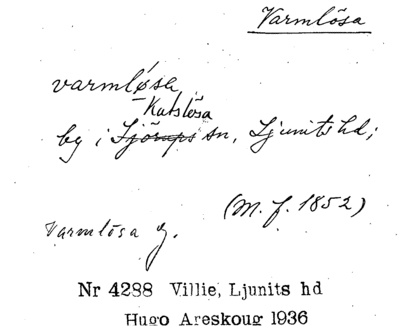 Varmlösa
varmlösa,
Katslösa
by i Sjörups sn, Ljunits hd;
(M. f. 1852)
Varmlösa g.
Nr 4288 Villie, Ljunits hd
Hugo Areskoug 1936